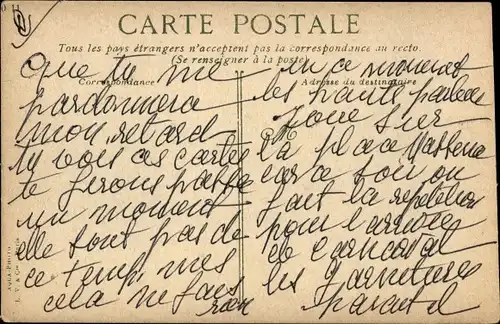 CARTE POSTALE
Tous les pays étrangers n'acceptent pas la correspondance au recto.
(Se renseigner à la poste)
Correspondance
Adresse du destinataire
Que tu me
pardonnera
mon retard
tu vois ces cartes
te ferons passe
un moment
elle sont pas de
ce temp mes
cela ne fais
rien
en ce moment
les hauts parleur
joue sur
la place Massena
car ce soir on
fait la repetition
pour l'arrivée
de Carnaval
les